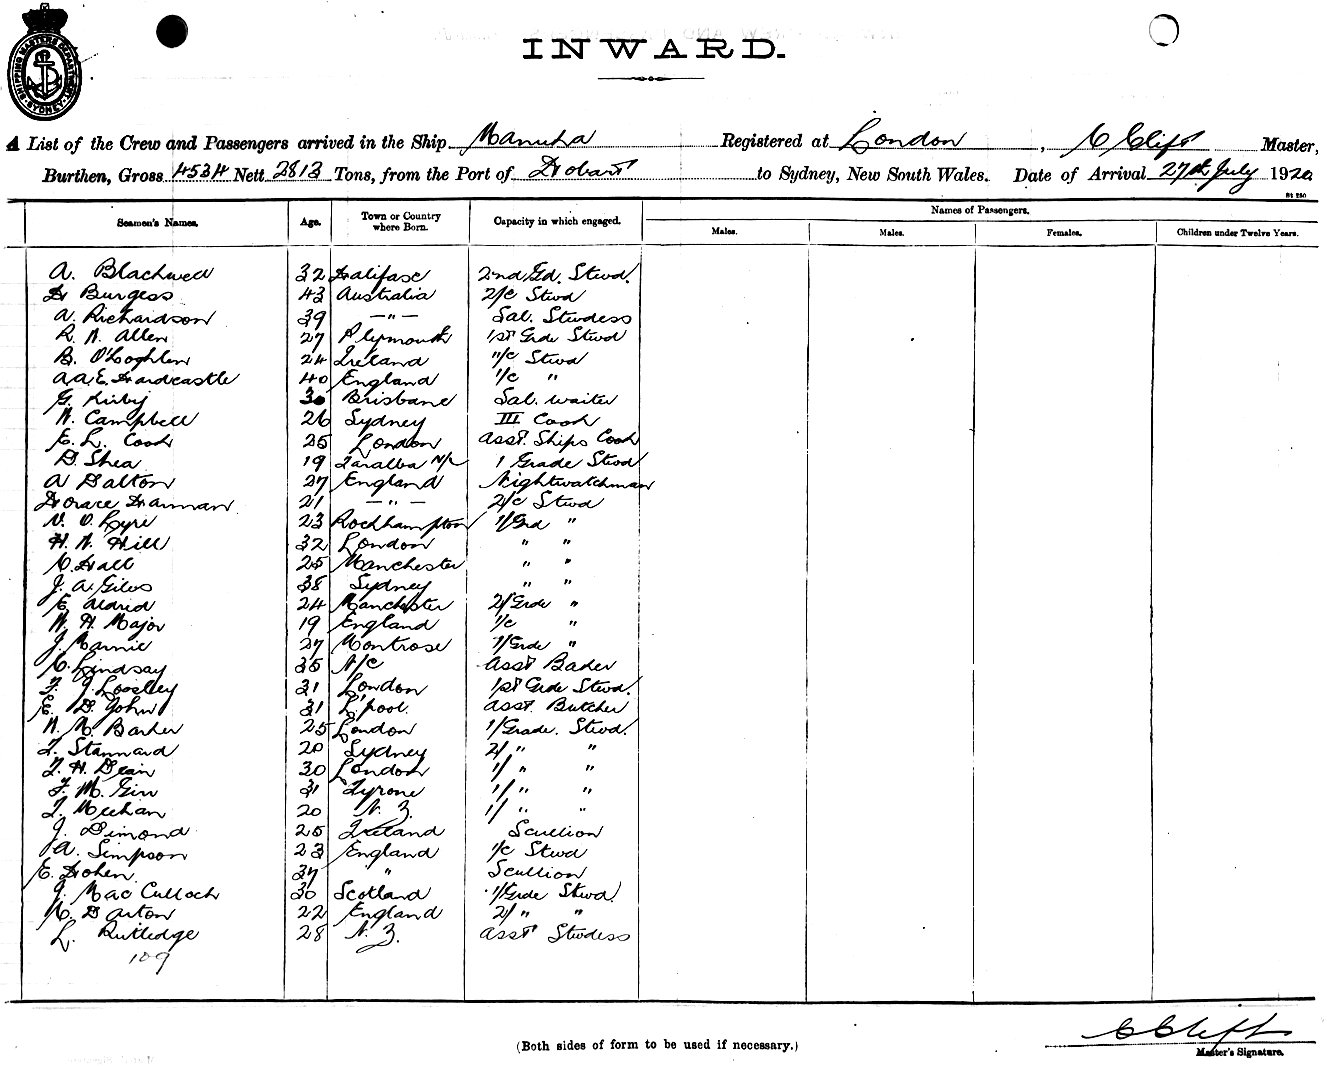 SHIPPING MASTERS DEPARTMENT SYDNEY
INWARD.
A List of the Crew and Passengers arrived in the Ship Manuka Registered at London, C Clift Master,
Burthen, Gross 4534 Nett 2813 Tons, from the Port of Hobart to Sydney, New South Wales. Date of Arrival 27th July 1920
Seamen's Names. Age. Town or Country where Born. Capacity in which engaged. Names of Passengers.
Males. Males. Females. Children under Twelve Years.
A. Blackwell 32 Halifax 2nd Gd. Stwd.
H Burgess 43 Australia 2/c Stwd
A. Richardson 39 —"— Sal. Stwdess
R. W. Allen 27 Plymouth 1st Grde Stwd
B. O'Loghlen 24 Ireland "/c Stwd
A.A.E. Hardcastle 40 England 1/c "
G. Kirby 30 Brisbane Sal. Waiter
W. Campbell 26 Sydney III Cook
E. L. Cook 25 London Asst. Ships Cook
D. Shea 19 Taralba 1 Grade Stwd
A Dalton 27 England Nightwatchman
Horace Harman 21 —"— 2/c Stwd
V. O. Eyre 23 Rockhampton 1/Grd "
H. W. Hill 32 London " "
C. Hall 25 Manchester " "
J. A. Giles 38 Sydney " "
E. Aldred 24 Manchester 2/Grde "
W. H. Major 19 England 1/c "
J. Marnie 27 Montrose 1/Grde "
C. Lindsay 35 N/C Asst Baker
F. J. Loosley 31 London 1st Grde Stwd.
E. D. John 31 L'pool. Asst. Butcher
W. M. Barker 25 London 1/Grade. Stwd.
T. Stannard 20 Sydney 2/ " "
T. H. Dean 30 London 1/ " "
F. M. Girr 31 Tyrone 1/ " "
T. Meehan 20 N. Z. 1/ " "
J. Dimond 25 Ireland Scullion
A. Simpson 23 England 1/c Stwd
E. Cohen 37 " Scullion
J. Mac Culloch 30 Scotland 1/Grde Stwd.
C. Darton 22 England 2/ " "
L. Rutledge 28 N. Z. Asst Stwdess
109
C Clift
Master's Signature.
(Both sides of form to be used if necessary.)